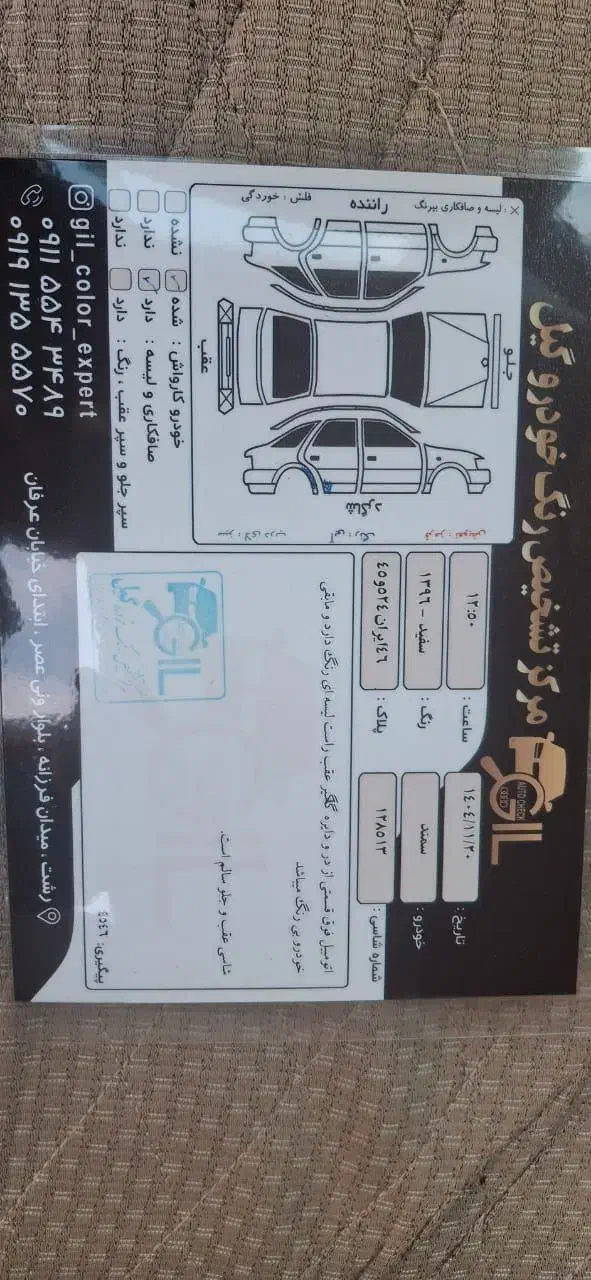 مرکز تشخیص رنگ خودرو گیل
GIL
AUTO CHECK
تاریخ : ۱۴۰۴/۱۱/۲۰
ساعت : ۱۲:۵۰
خودرو : سمند
رنگ : سفید - ۱۳۹۶
شماره شاسی : ۱۲۸۵۱۳
پلاک : ۴۶ایران۵۲۴و۴۵
اتومبیل فوق قسمتی از در و دایره گلگیر عقب راست لیسه ای رنگ دارد و مابقی
خودرو بی رنگ میباشد
شاسی عقب و جلو سالم است.
GIL
پیگیری: ۹۵۴۶
× : لیسه و صافکاری بیرنگ
راننده
فلش : خوردگی
جلو
عقب
شاگرد
قرمز : تعویض
آبی : رنگ
خودرو کارواش : شده نشده
صافکاری و لیسه : دارد ندارد
سپر جلو و سپر عقب ، رنگ : دارد ندارد
gil_color_expert
۰۹۱۱ ۵۵۴ ۳۴۸۹
۰۹۱۹ ۱۳۵ ۵۵۷۰
رشت ، میدان فرزانه ، بلوار ولی عصر ، ابتدای خیابان عرفان